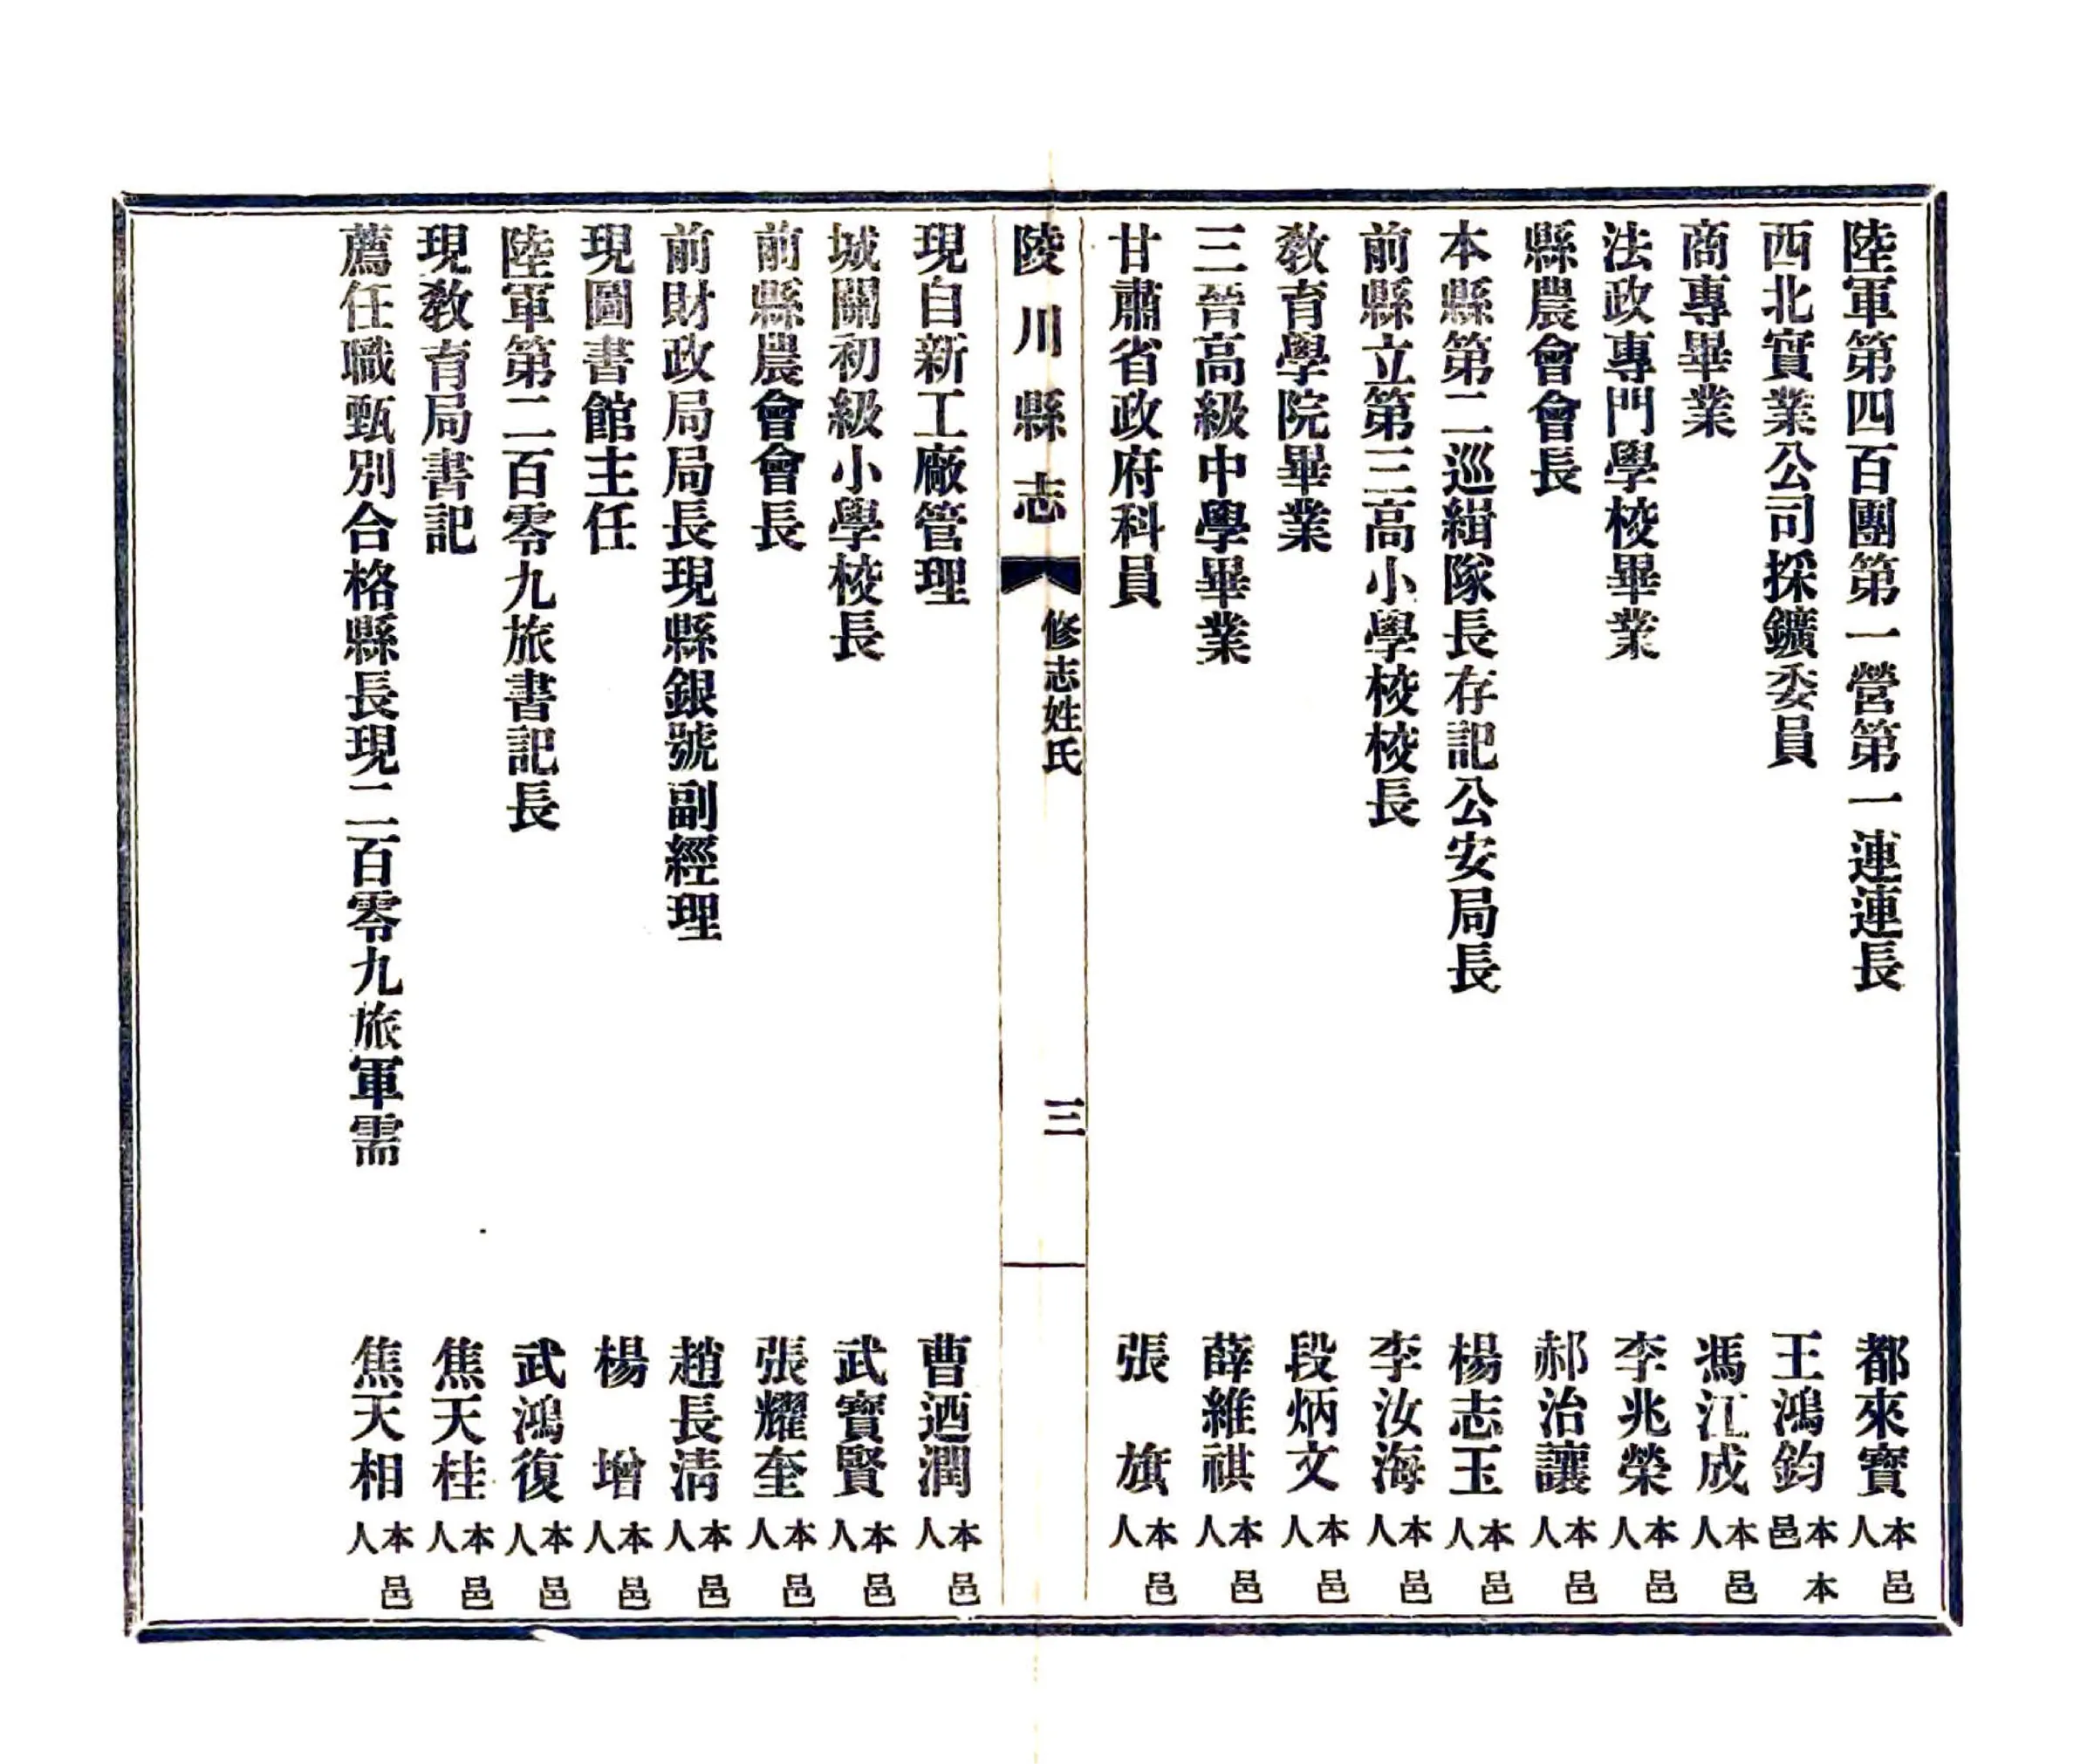 陸軍第四百團第一營第一連連長 都來寶 本邑人
西北實業公司採鑛委員 王鴻鈞 本本邑
商專畢業 馮江成 本邑人
法政專門學校畢業 李兆榮 本邑人
縣農會會長 郝治讓 本邑人
本縣第二巡緝隊長存記公安局長 楊志玉 本邑人
前縣立第三高小學校校長 李汝海 本邑人
敎育學院畢業 段炳文 本邑人
三晉高級中學畢業 薛維祺 本邑人
甘肅省政府科員 張旗 本邑人
陵川縣志 修志姓氏 三
現自新工廠管理 曹迺潤 本邑人
城關初級小學校長 武寶賢 本邑人
前縣農會會長 張耀奎 本邑人
前財政局局長現縣銀號副經理 趙長清 本邑人
現圖書館主任 楊增 本邑人
陸軍第二百零九旅書記長 武鴻復 本邑人
現敎育局書記 焦天桂 本邑人
薦任職甄別合格縣長現二百零九旅軍需 焦天相 本邑人